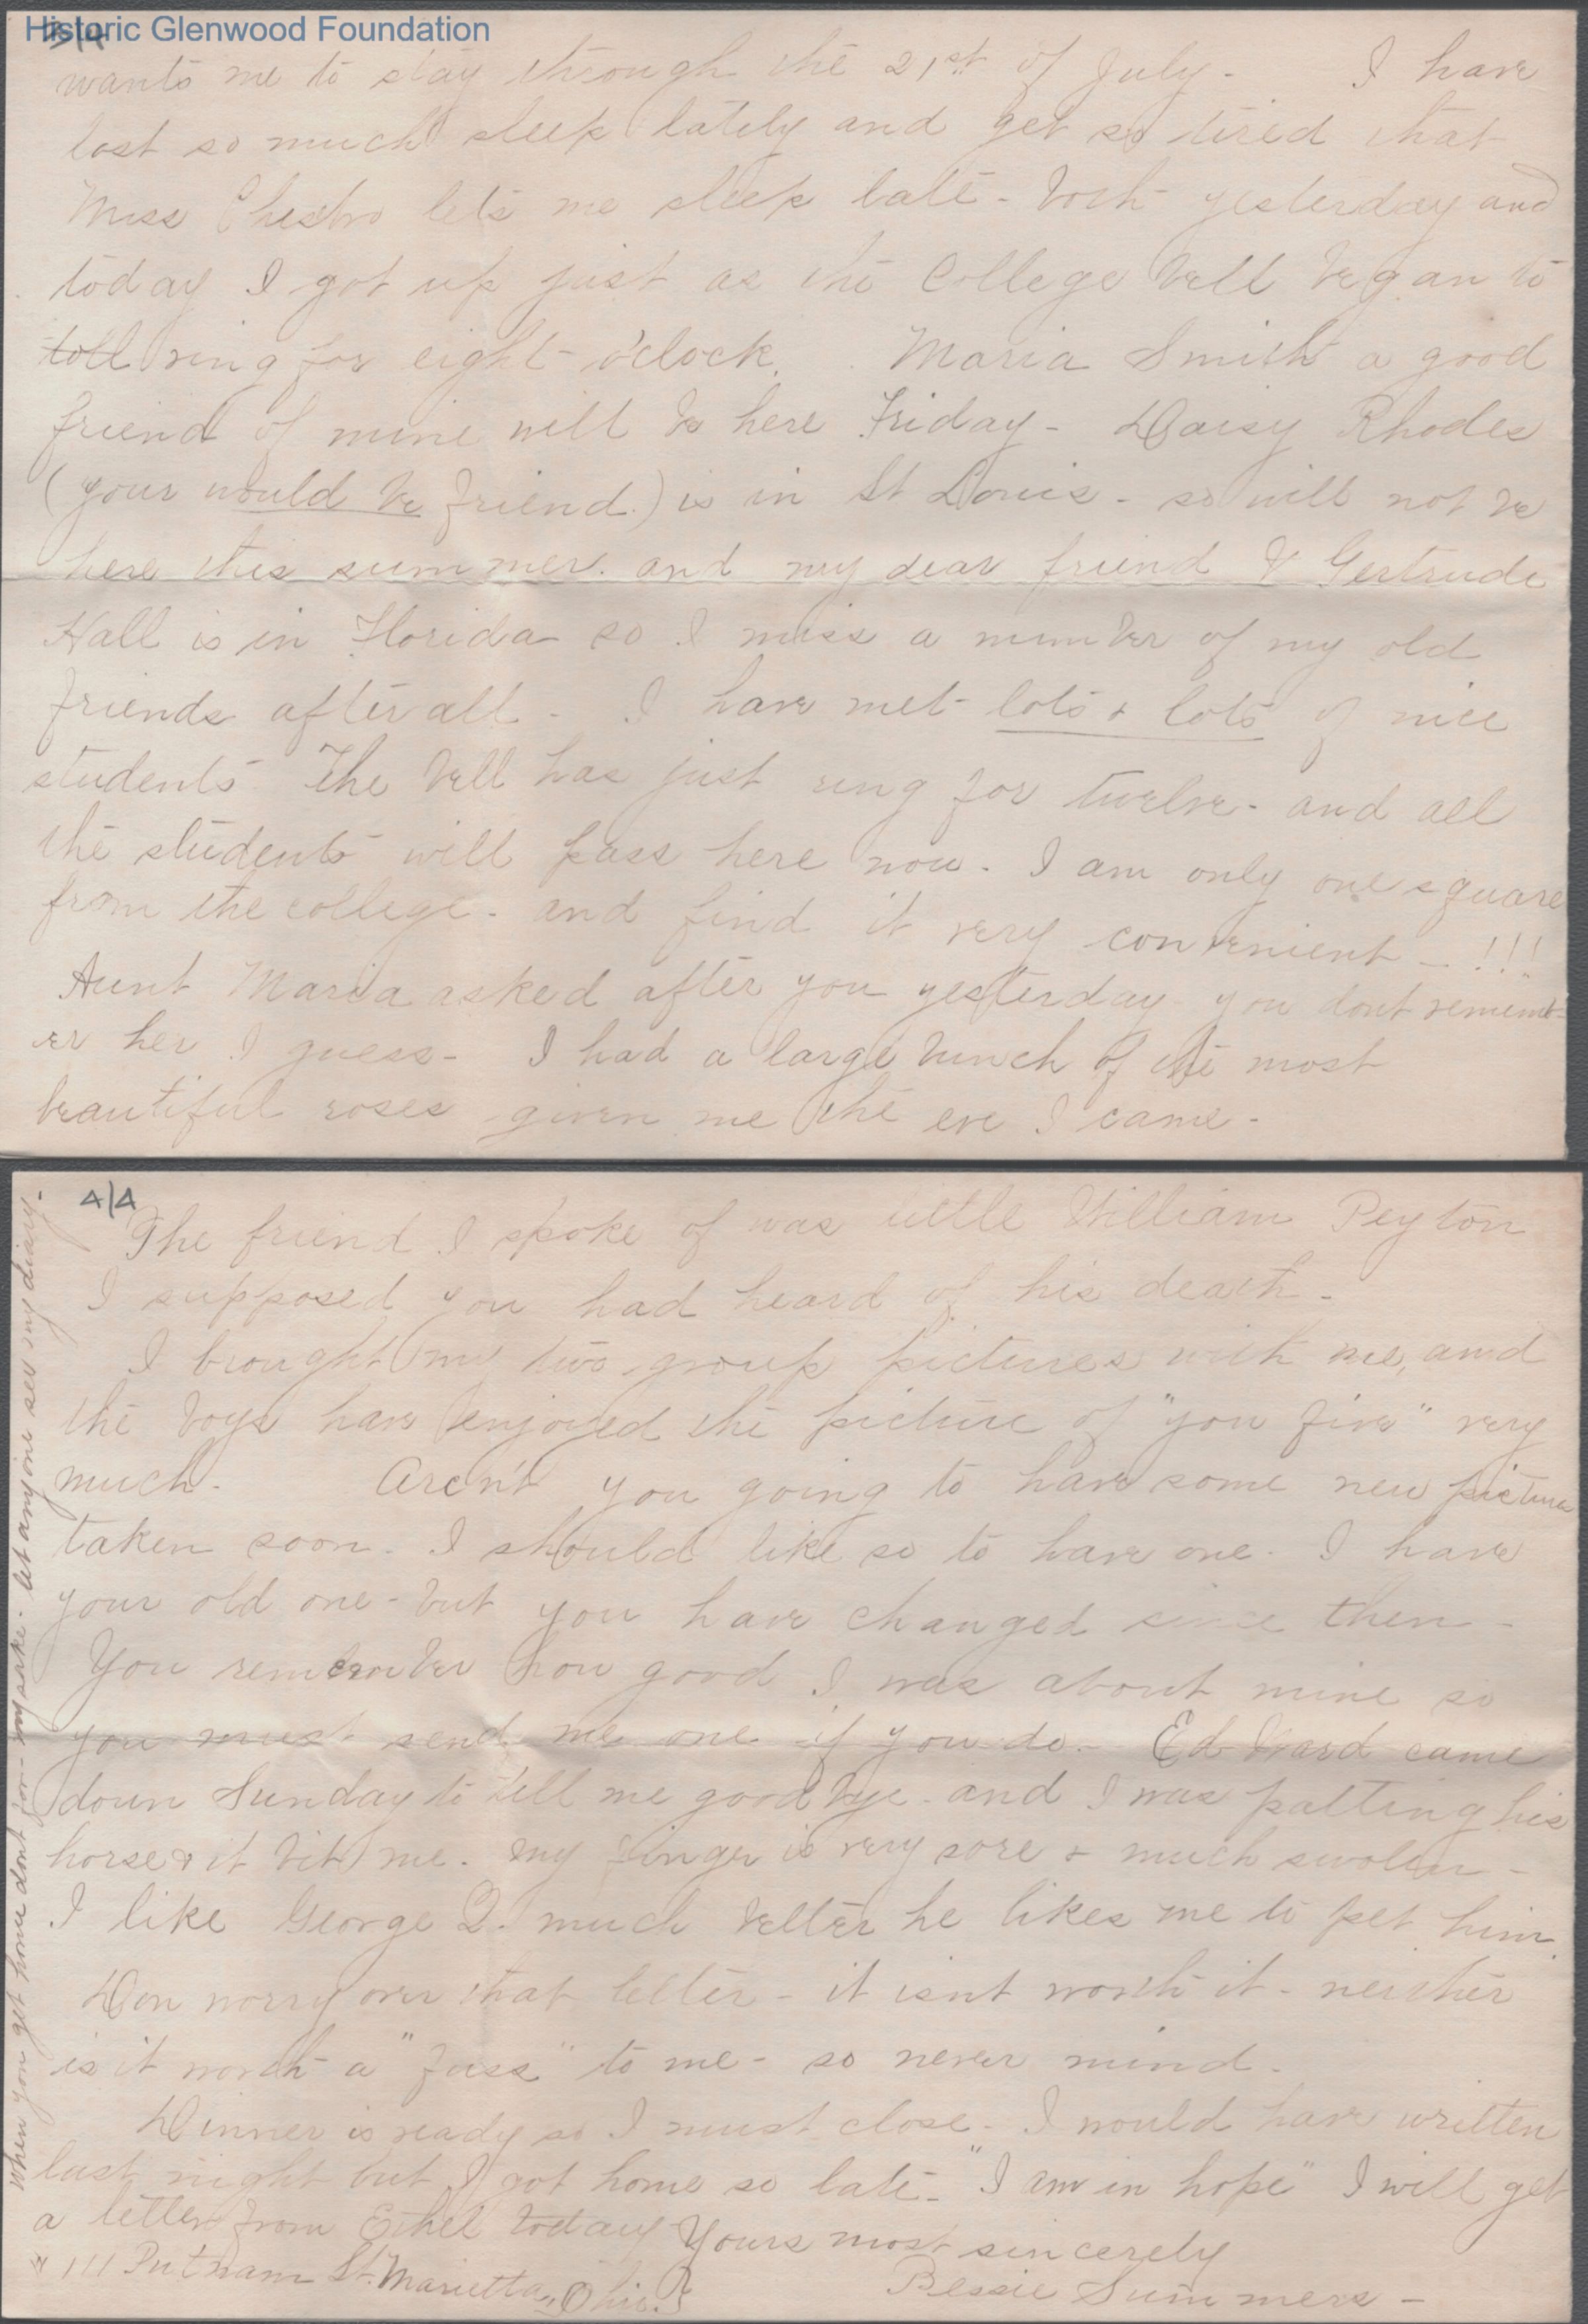 Historic Glenwood Foundation
3/4
wants me to stay through the 21st of July - I have
lost so much sleep lately and get so tired that
Miss lets me sleep late - both yesterday and
today I got up just as the College bell began to
toll ring for eight o'clock. Maria Smith a good
friend of mine will be here Friday - Daisy Rhodes
(your would be friend.) is in St Louis - so will not be
here this summer. and my dear friend Gertrude
Hall is in Florida so I miss a number of my old
friends after all - I have met lots & lots of nice
students - The bell has just rung for twelve - and all
the students will pass here now - I am only one square
from the college - and find it very convenient - !!!
Aunt Maria asked after you yesterday - you dont rememb-
er her I guess - I had a large bunch of the most
beautiful roses given me the eve I came -
4/4
The friend I spoke of was little William Peyton
I supposed you had heard of his death -
I brought my two group pictures with me, and
the boys have enjoyed the picture of "you five" very
much. Aren't you going to have some new pictures
taken soon - I should like so to have one - I have
your old one - but you have changed since then -
You remember how good I was about mine so
you must send me one if you do. - Ed Ward came
down Sunday to tell me good bye - and I was patting his
horse & it bit me. My finger is very sore & much swollen -
I like George Q. much better he likes me to pet him.
Don worry over that letter - it isnt worth it - neither
is it worth a "fuss" to me - so never mind -
Dinner is ready so I must close - I would have written
last night but I got home so late - "I am in hope" I will get
a letter from Ethel today Yours most sincerely
111 Putnam St. Marietta, Ohio. Bessie Summers -
When you get home dont for - my sake - let anyone see my diary -